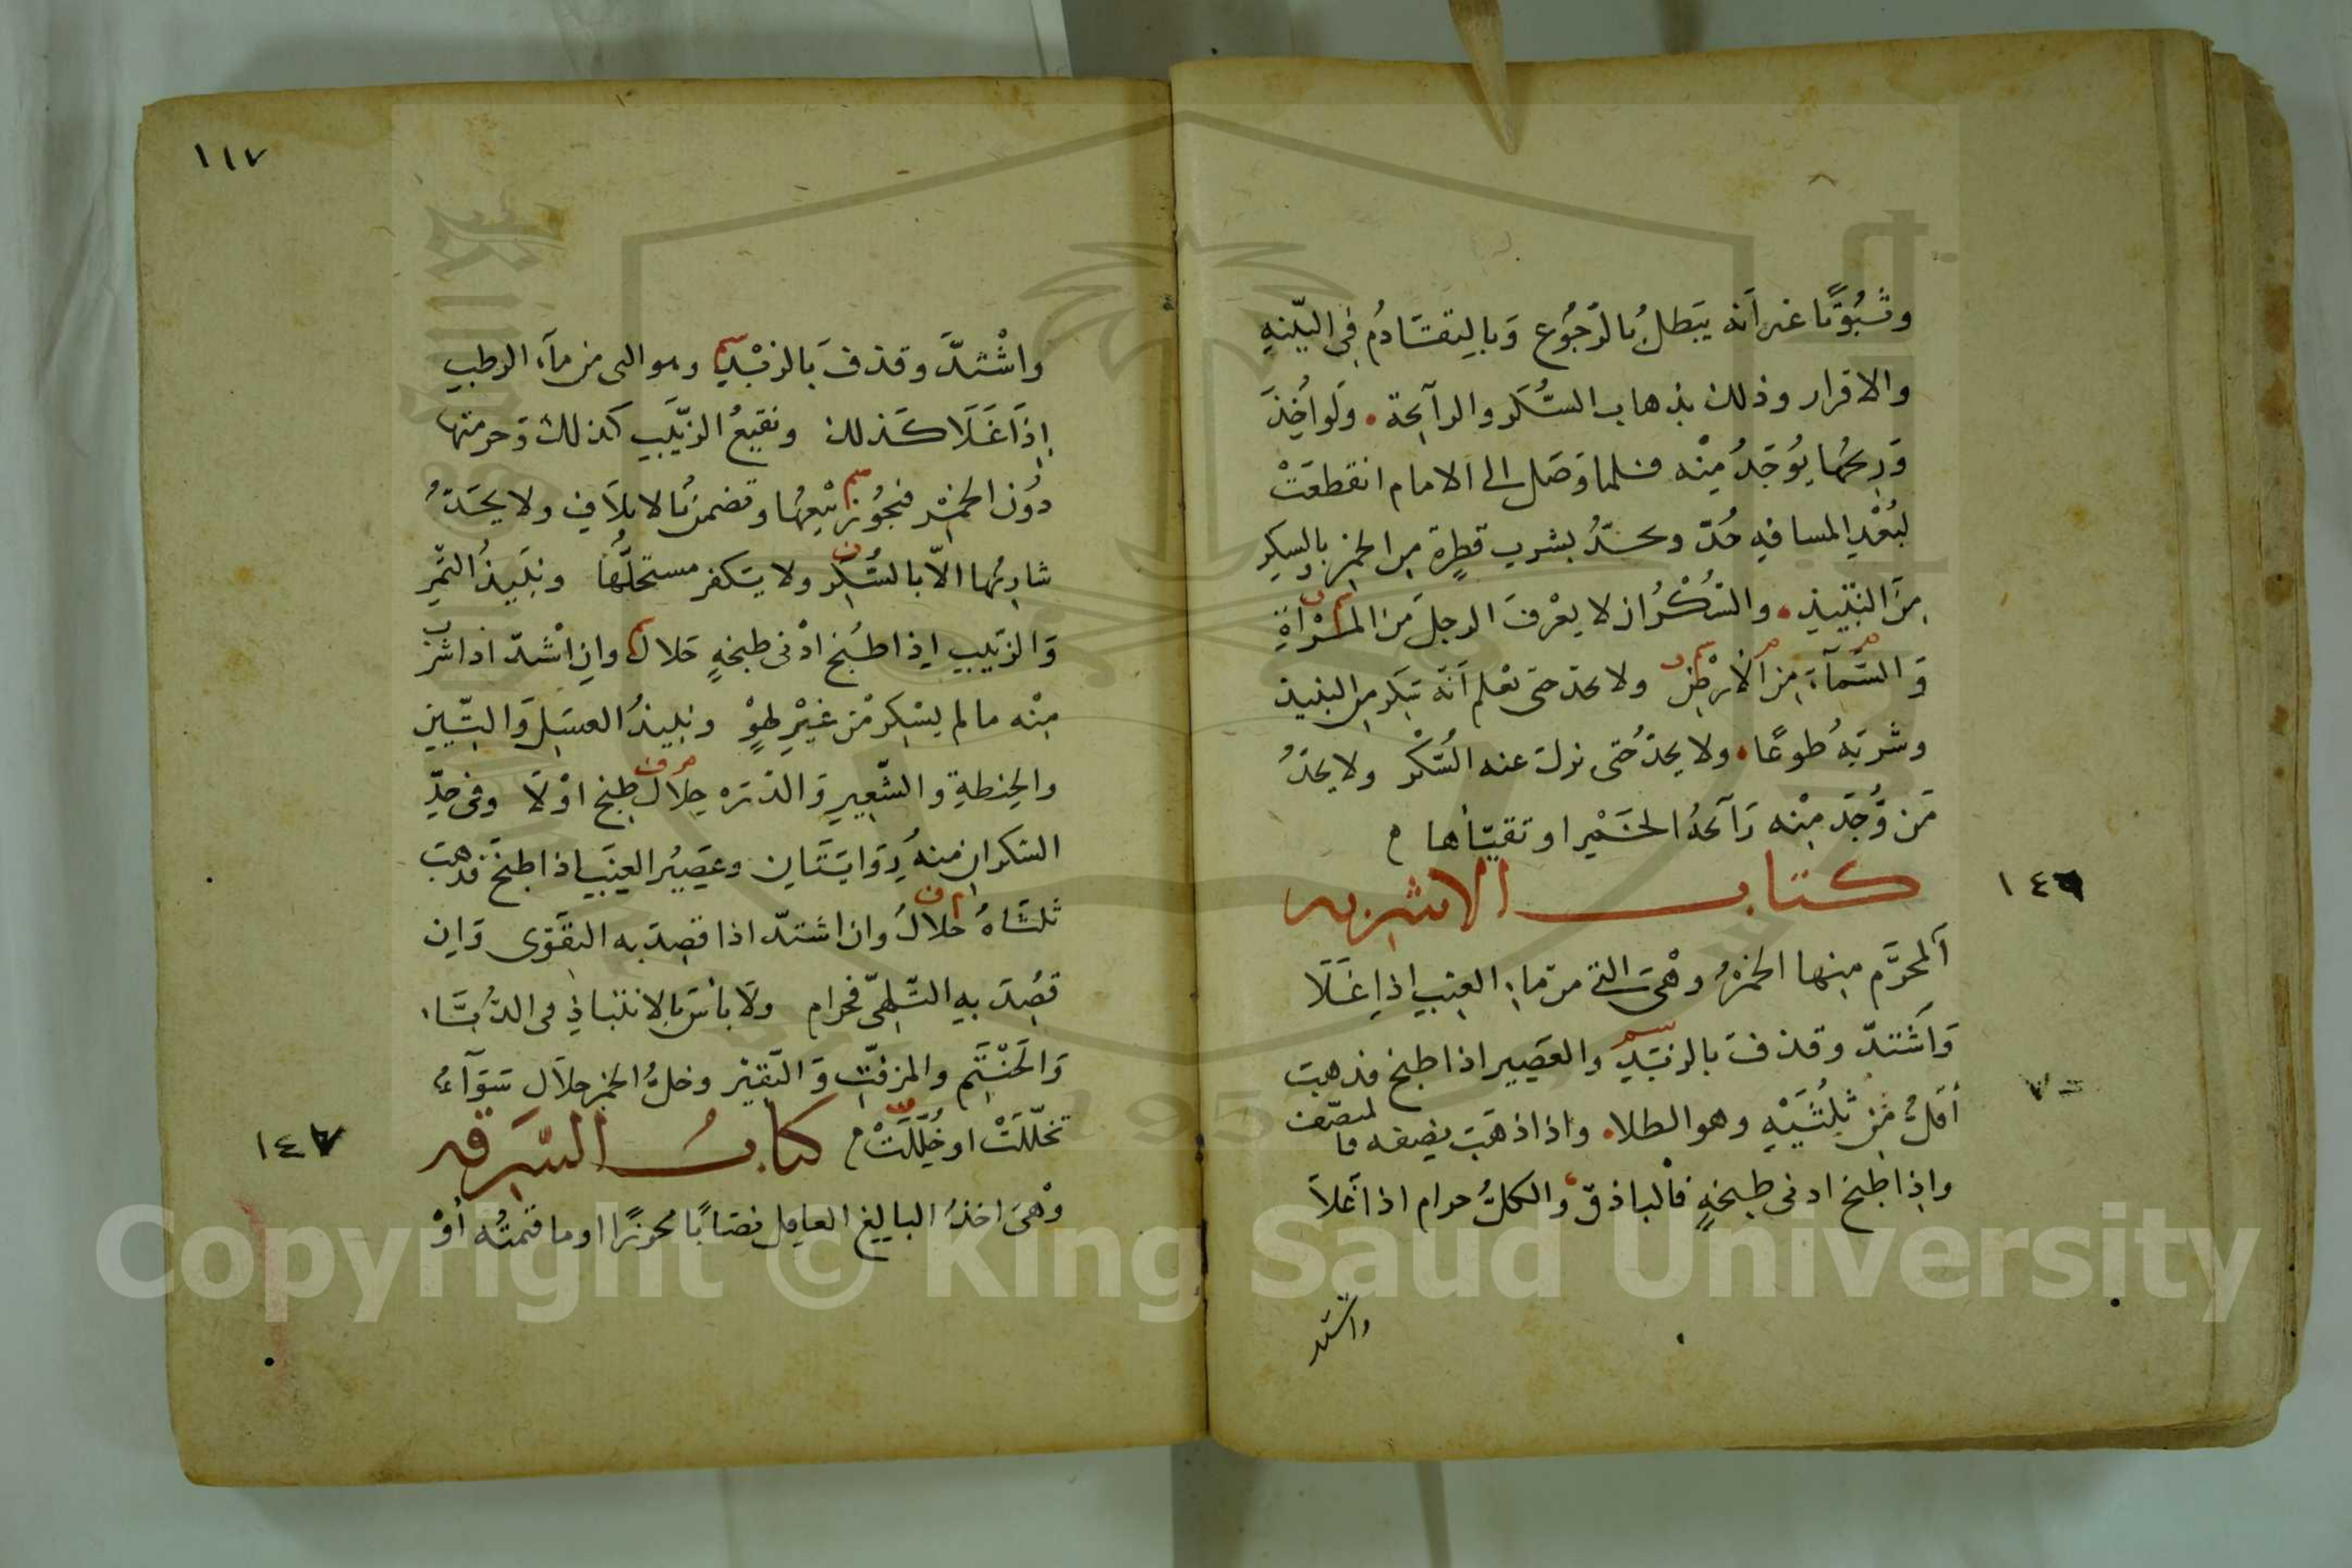 وثُبُوتًا غير أنه يَبطلُ بالرّجُوع وَبالتقَادُم في البيّنةِ
والاقرار وذلك بذهاب السُّكر والرآئحة. ولَو أُخِذَ
وَرِيحُها يُوجَدُ مِنْه فلما وَصَل الى الامام انقطعَتْ
لبُعْدِ المسافةِ حُدّ ويحدُّ بشرب قطرة من الخمر وبالسكر
مِنَ النَّبيذِ. والسُّكْرُ ان لا يعْرفَ الرجلَ من المرْأةِ
وَالسَّمآءَ من الأرْضِ ولا يحد حتى يعْلم أنّه سَكر من النبيذ
وشربَهُ طوعًا. ولا يحدُّ حتى يزول عنه السُّكْر ولا يحدُّ
مَن وُجَد مِنْه رَآئحةُ الخَمْر او تقيّأها
كتاب الاشربه
١٤٦
ألمحرَّم منها الخمرُ وهْيَ التي من مآء العنب اذا غَلَا
وَاَشْتدّ وقذفَ بالزبَدِ والعَصِير اذا طبخ فذهبَ
أقلُّ مِن ثُلُثَيْهِ وهو الطلا. واذا ذهَبَ نصفه فا لمنصّف
واذا طبخ ادنى طبخةٍ فالباذق والكلُّ حرام اذا غَلاَ
٧٠
واشتد
١١٧
واشْتدَّ وقذفَ بَالزبْدِ وهو النى من مآء الرطبِ
إذَا غَلَا كَذلك ونقيعُ الزّبيَبِ كذلك وَحرمتها
دُون الخمْر فيجُوز بَيْعُها وتضمنُ بالاتلاَفِ ولا يحَدُّ
شاربُها الاّ بالسُّكر ولا يَكفر مستحلُّهَا ونبَيذُ التَّمْرِ
وَالزّبيبِ إذا طُبخ ادْنى طبخةٍ حَلال وان اشْتدّ اذا شرب
مِنْه ما لم يسْكر مْن غيْرِ لهْوٍ ونبيذُ العسَلِ وَالتّينِ
والحِنطةِ والشّعِيرِ وَالذّرَه حِلال طبخ اوْ لَا وفي حدِّ
السكران منهُ رِوَايتَان وعَصيُر العِنَب اذا طبخَ فذهبَ
ثلثَاهُ حَلالُ وان اشتدّ اذا قصِدَ به التقَوّى وَان
قصُدَ بهِ التَّلهّي فحرام ولَا بأسَ بالانتباذِ في الدُّبَّاء
وَالحَنْتَمِ والمزفّتِ وَالنّقيْر وخلُّ الخمر حلاَل سَوَآءٌ
تخلّلَتْ او خُلِّلَتْ كتابُ السَّرقه
١٤٧
وهْيَ اخذُ البالِغ العاقِل نصَابًا محرزًا او ما قيمتُه أوْ
Copyright © King Saud University